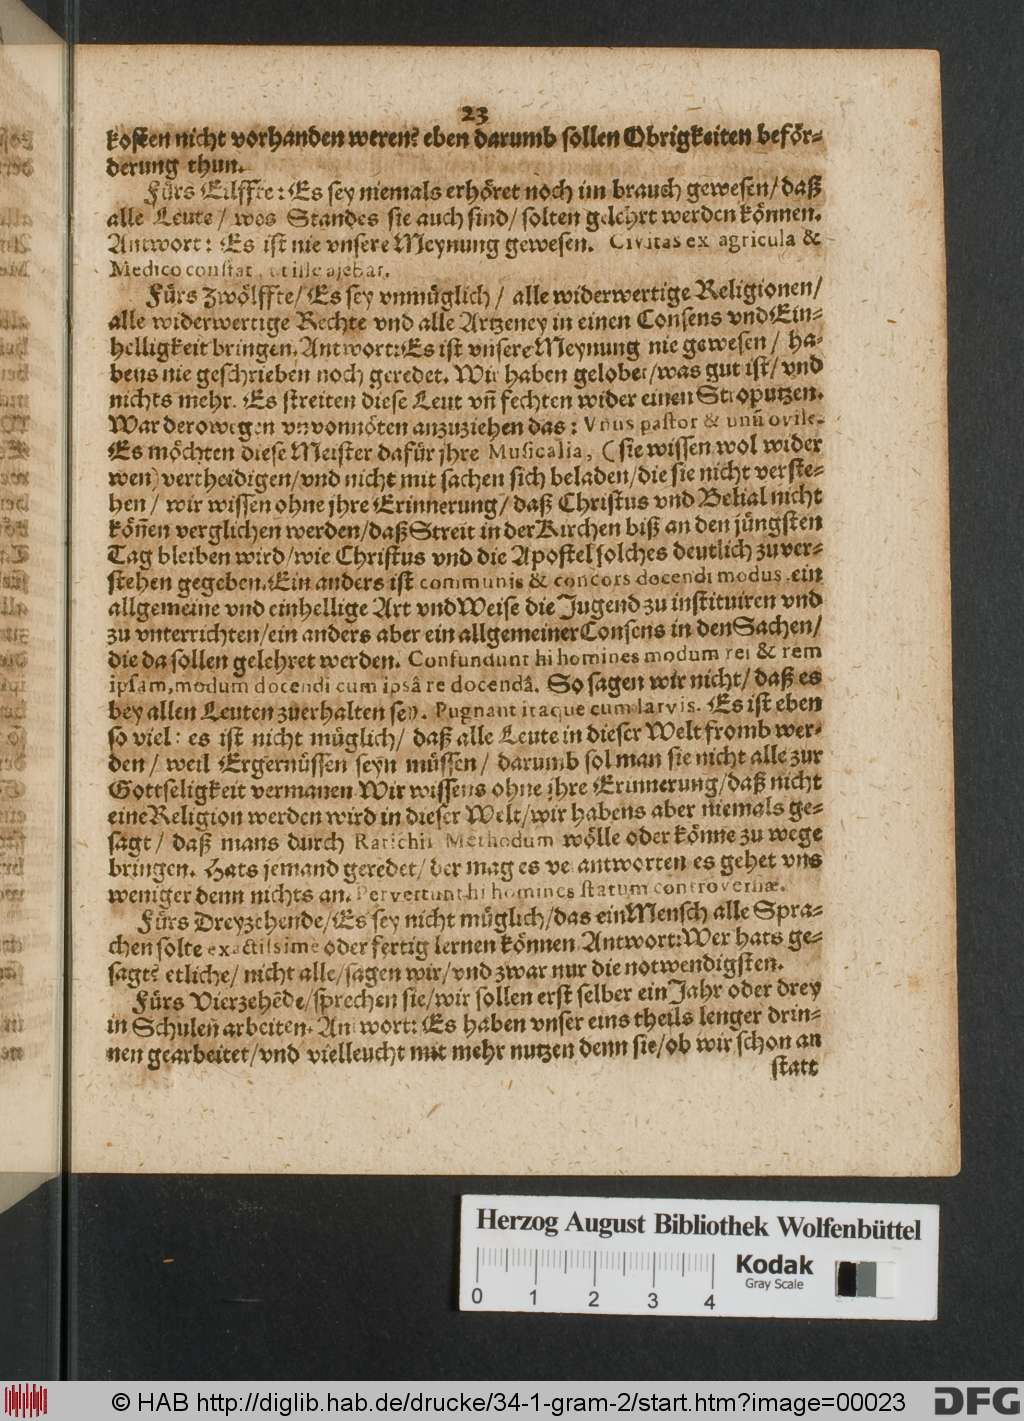 23
kosten nicht vorhanden weren? eben darumb sollen Obrigkeiten beför-
derung thun.
Fürs Eilffte: Es sey niemals erhöret noch im brauch gewesen/ daß
alle Leute/ wes Standes sie auch sind/ solten gelehrt werden können.
Antwort: Es ist nie vnsere Meynung gewesen. Civitas ex agricula &
Medico constat, ut ille ajebat.
Fürs Zwölffte/ Es sey vnmüglich/ alle widerwertige Religionen/
alle widerwertige Rechte vnd alle Artzeney in einen Consens vnd Ein-
helligkeit bringen, Antwort: Es ist vnsere Meynung nie gewesen/ ha-
bens nie geschrieben noch geredet. Wir haben gelobet/ was gut ist/ vnd
nichts mehr. Es streiten diese Leut vñ fechten wider einen Stroputzen.
War derowegen vnvonnöten anzuziehen das: Vnus pastor & unũ ovile.
Es möchten diese Meister dafür jhre Musicalia, (sie wissen wol wider
wen) vertheidigen/ vnd nicht mit sachen sich beladen/ die sie nicht verste-
hen/ wir wissen ohne jhre Erinnerung/ daß Christus vnd Belial nicht
köñen verglichen werden/ daß Streit in der Kirchen biß an den jüngsten
Tag bleiben wird/ wie Christus vnd die Apostel solches deutlich zu ver-
stehen gegeben. Ein anders ist communis & concors docendi modus, ein
allgemeine vnd einhellige Art vnd Weise die Jugend zu instituiren vnd
zu vnterrichten/ ein anders aber ein allgemeiner Consens in den Sachen/
die da sollen gelehret werden. Confundunt hi homines modum rei & rem
ipsam, modum docendi cum ipsâ re docendâ. So sagen wir nicht/ daß es
bey allen Leuten zuerhalten sey. Pugnant itaque cum larvis. Es ist eben
so viel: es ist nicht müglich/ daß alle Leute in dieser Welt fromb wer-
den/ weil Ergernüssen seyn müssen/ darumb sol man sie nicht alle zur
Gottseligkeit vermanen Wir wissens ohne jhre Erinnerung/ daß nicht
eine Religion werden wird in dieser Welt/ wir habens aber niemals ge-
sagt/ daß mans durch Ratichii Methodum wölle oder könne zu wege
bringen. Hats jemand geredet/ der mag es verantworten es gehet vns
weniger denn nichts an. Pervertunt hi homines statum controversiæ.
Fürs Dreyzehende/ Es sey nicht müglich/ das ein Mensch alle Spra-
chen solte exactissime oder fertig lernen können Antwort: Wer hats ge-
sagt? etliche/ nicht alle/ sagen wir/ vnd zwar nur die notwendigsten.
Fürs Vierzehẽde/ sprechen sie/ wir sollen erst selber ein Jahr oder drey
in Schulen arbeiten. Antwort: Es haben vnser eins theils lenger drin-
nen gearbeitet/ vnd vielleucht mit mehr nutzen denn sie/ ob wir schon an
statt
Herzog August Bibliothek Wolfenbüttel
Kodak
Gray Scale
0 1 2 3 4
© HAB http://diglib.hab.de/drucke/34-1-gram-2/start.htm?image=00023
DFG